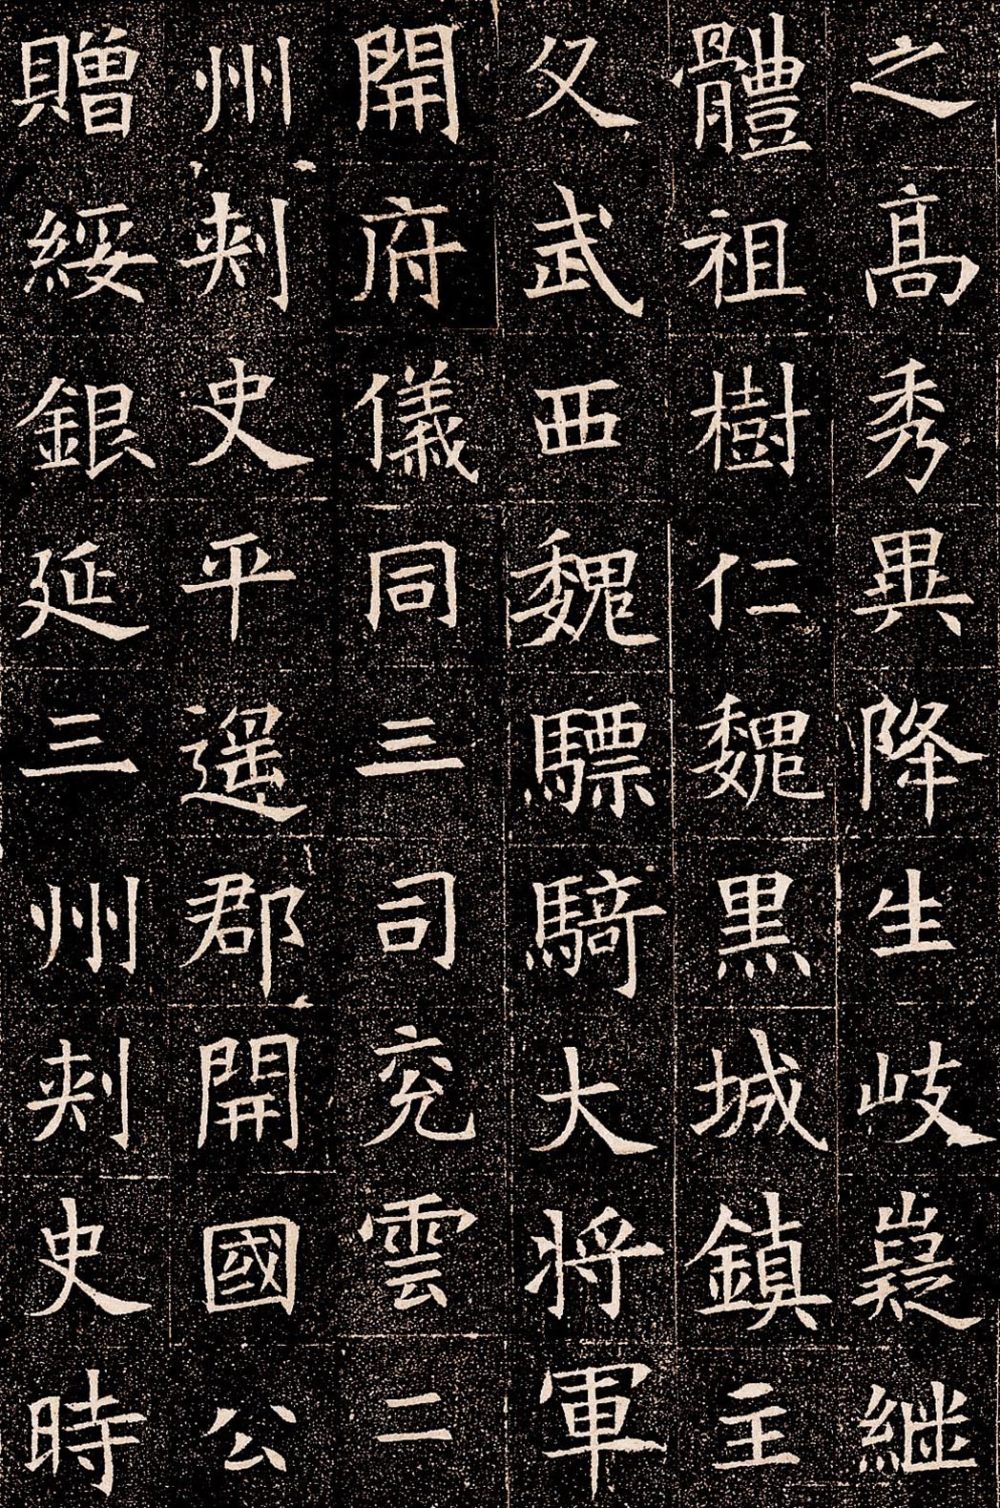 之高秀異降生岐嶷継
體祖樹仁魏黒城鎮主
父武西魏驃騎大将軍
開府儀同三司兖雲二
州刾史平遥郡開國公
贈綏銀延三州刾史時